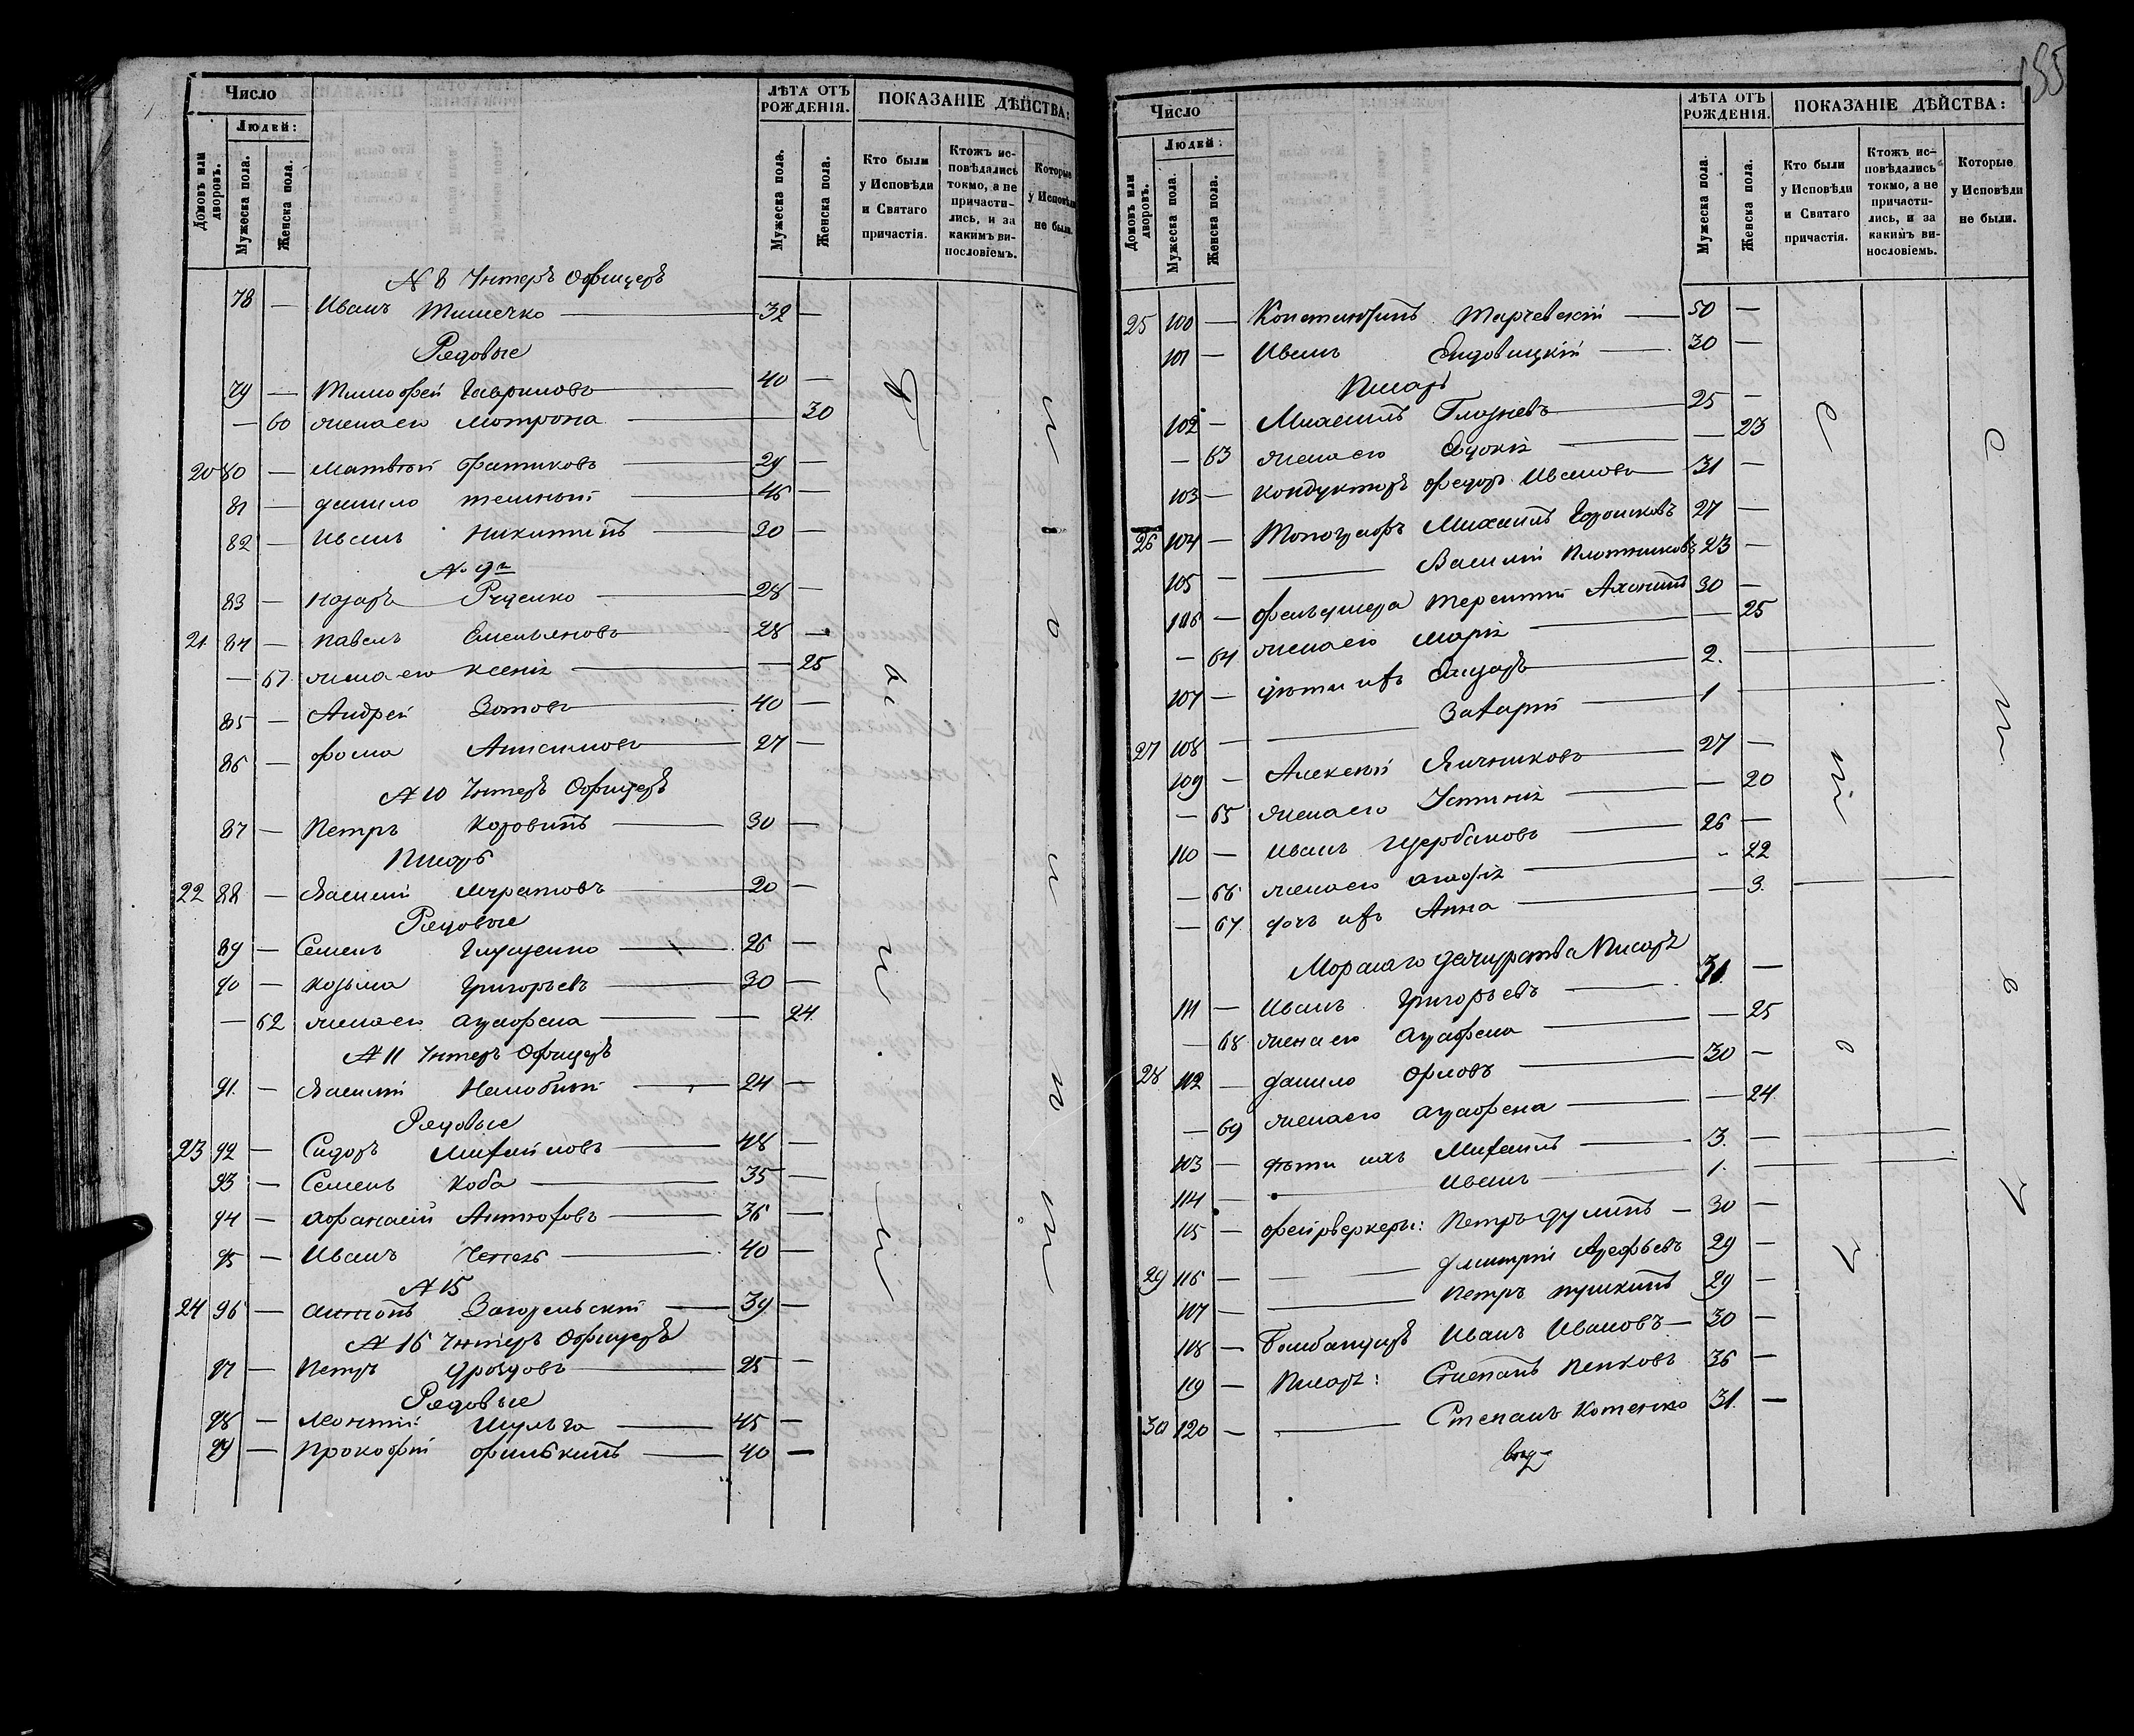 Число
Людей:
Домовъ или дворовъ.
Мужеска пола.
Женска пола.
ЛѢТА ОТЪ РОЖДЕНІЯ.
Мужеска пола.
Женска пола.
ПОКАЗАНІЕ ДѢЙСТВА:
Кто были у Исповѣди и Святаго причастія.
Ктожъ исповѣдались токмо, а не причастились, и за какимъ винословіемъ.
Которые у Исповѣди не были.
№ 8 Унтеръ Офицеръ
78 — Иванъ Тимечко — 32 —
Рядовые
79 — Тимофей Гавриловъ — 40 —
— 60 жена его Мотрона — 30
20 80 — Матвѣй — 29 —
81 — Данило — 46 —
82 — Иванъ Никитинъ — 20 —
№ 9й
83 — Назаръ Руденко — 28 —
21 84 — Павелъ Емельяновъ — 28 —
— 61 жена его Ксенія — — 25
85 — Андрей Зотовъ — 40 —
86 — Фома Анисимовъ — 27 —
№ 10 Унтеръ Офицеръ
87 — Петръ Коровинъ — 30 —
Писарь
22 88 — Василий Муратовъ — 20 —
Рядовые
89 — Семенъ Глущенко — 26 —
90 — Козьма Григорьевъ — 30 —
— 62 жена его Агрофена — — 24
№ 11 Унтеръ Офицеръ
91 — Василий — 24 —
Рядовые
23 92 — Сидоръ Михайловъ — 48 —
93 — Семенъ Коба — 35 —
94 — Афанасій — 36 —
95 — Иванъ Чепель — 40 —
№ 15
24 96 — Антонъ Загорельскій — 39 —
№ 16 Унтеръ Офицеръ
97 — Петръ Дроздовъ — 25 —
Рядовые
98 — Леонтій Шульга — 45 —
99 — Прокофій Филькинъ — 40 —
155
Число
Людей:
Домовъ или дворовъ.
Мужеска пола.
Женска пола.
ЛѢТА ОТЪ РОЖДЕНІЯ.
Мужеска пола.
Женска пола.
ПОКАЗАНІЕ ДѢЙСТВА:
Кто были у Исповѣди и Святаго причастія.
Ктожъ исповѣдались токмо, а не причастились, и за какимъ винословіемъ.
Которые у Исповѣди не были.
25 100 — Константинъ Тарчевскій — 50 —
101 — Иванъ — 30 —
Писарь
102 — Михаилъ Глазневъ — 25 —
— 63 жена его Евдокія — — 23
103 — Кондукторъ Федоръ Ивановъ — 31 —
26 104 — Топографъ Михаилъ 27 —
105 — — Василій Плотниковъ 23 —
106 — Фельдшера Терентій 30 —
— 64 жена его Марія — — 25
107 — дѣти ихъ — 2. —
27 108 — — Захарій — 1 —
109 — Алексѣй Яичниковъ — 27 —
— 65 жена его Устинія — — 20
110 — Иванъ Щербаковъ — 26 —
— 66 жена его Агафія — - 22
— 67 дочь ихъ Анна — — 3. —
Морскаго Писарь
111 — Иванъ Григорьевъ — 31 —
— 68 жена его Аграфена — — 25
28 112 — Данило Орловъ — 30 —
— 69 жена его Аграфена — — 24
103 — дѣти ихъ Михаилъ — 3. —
114 — — Иванъ — 1. —
115 — фейрверкеры: Петръ Дулинъ — 30 —
29 116 — — Дмитрій 29 —
107 — — Петръ Пушкинъ 29 —
118 — Бомбандиръ Иванъ Ивановъ — 30 —
119 — Писарь: Степанъ Пенковъ 36 —
30 120 — — Степанъ Котенко 31. —